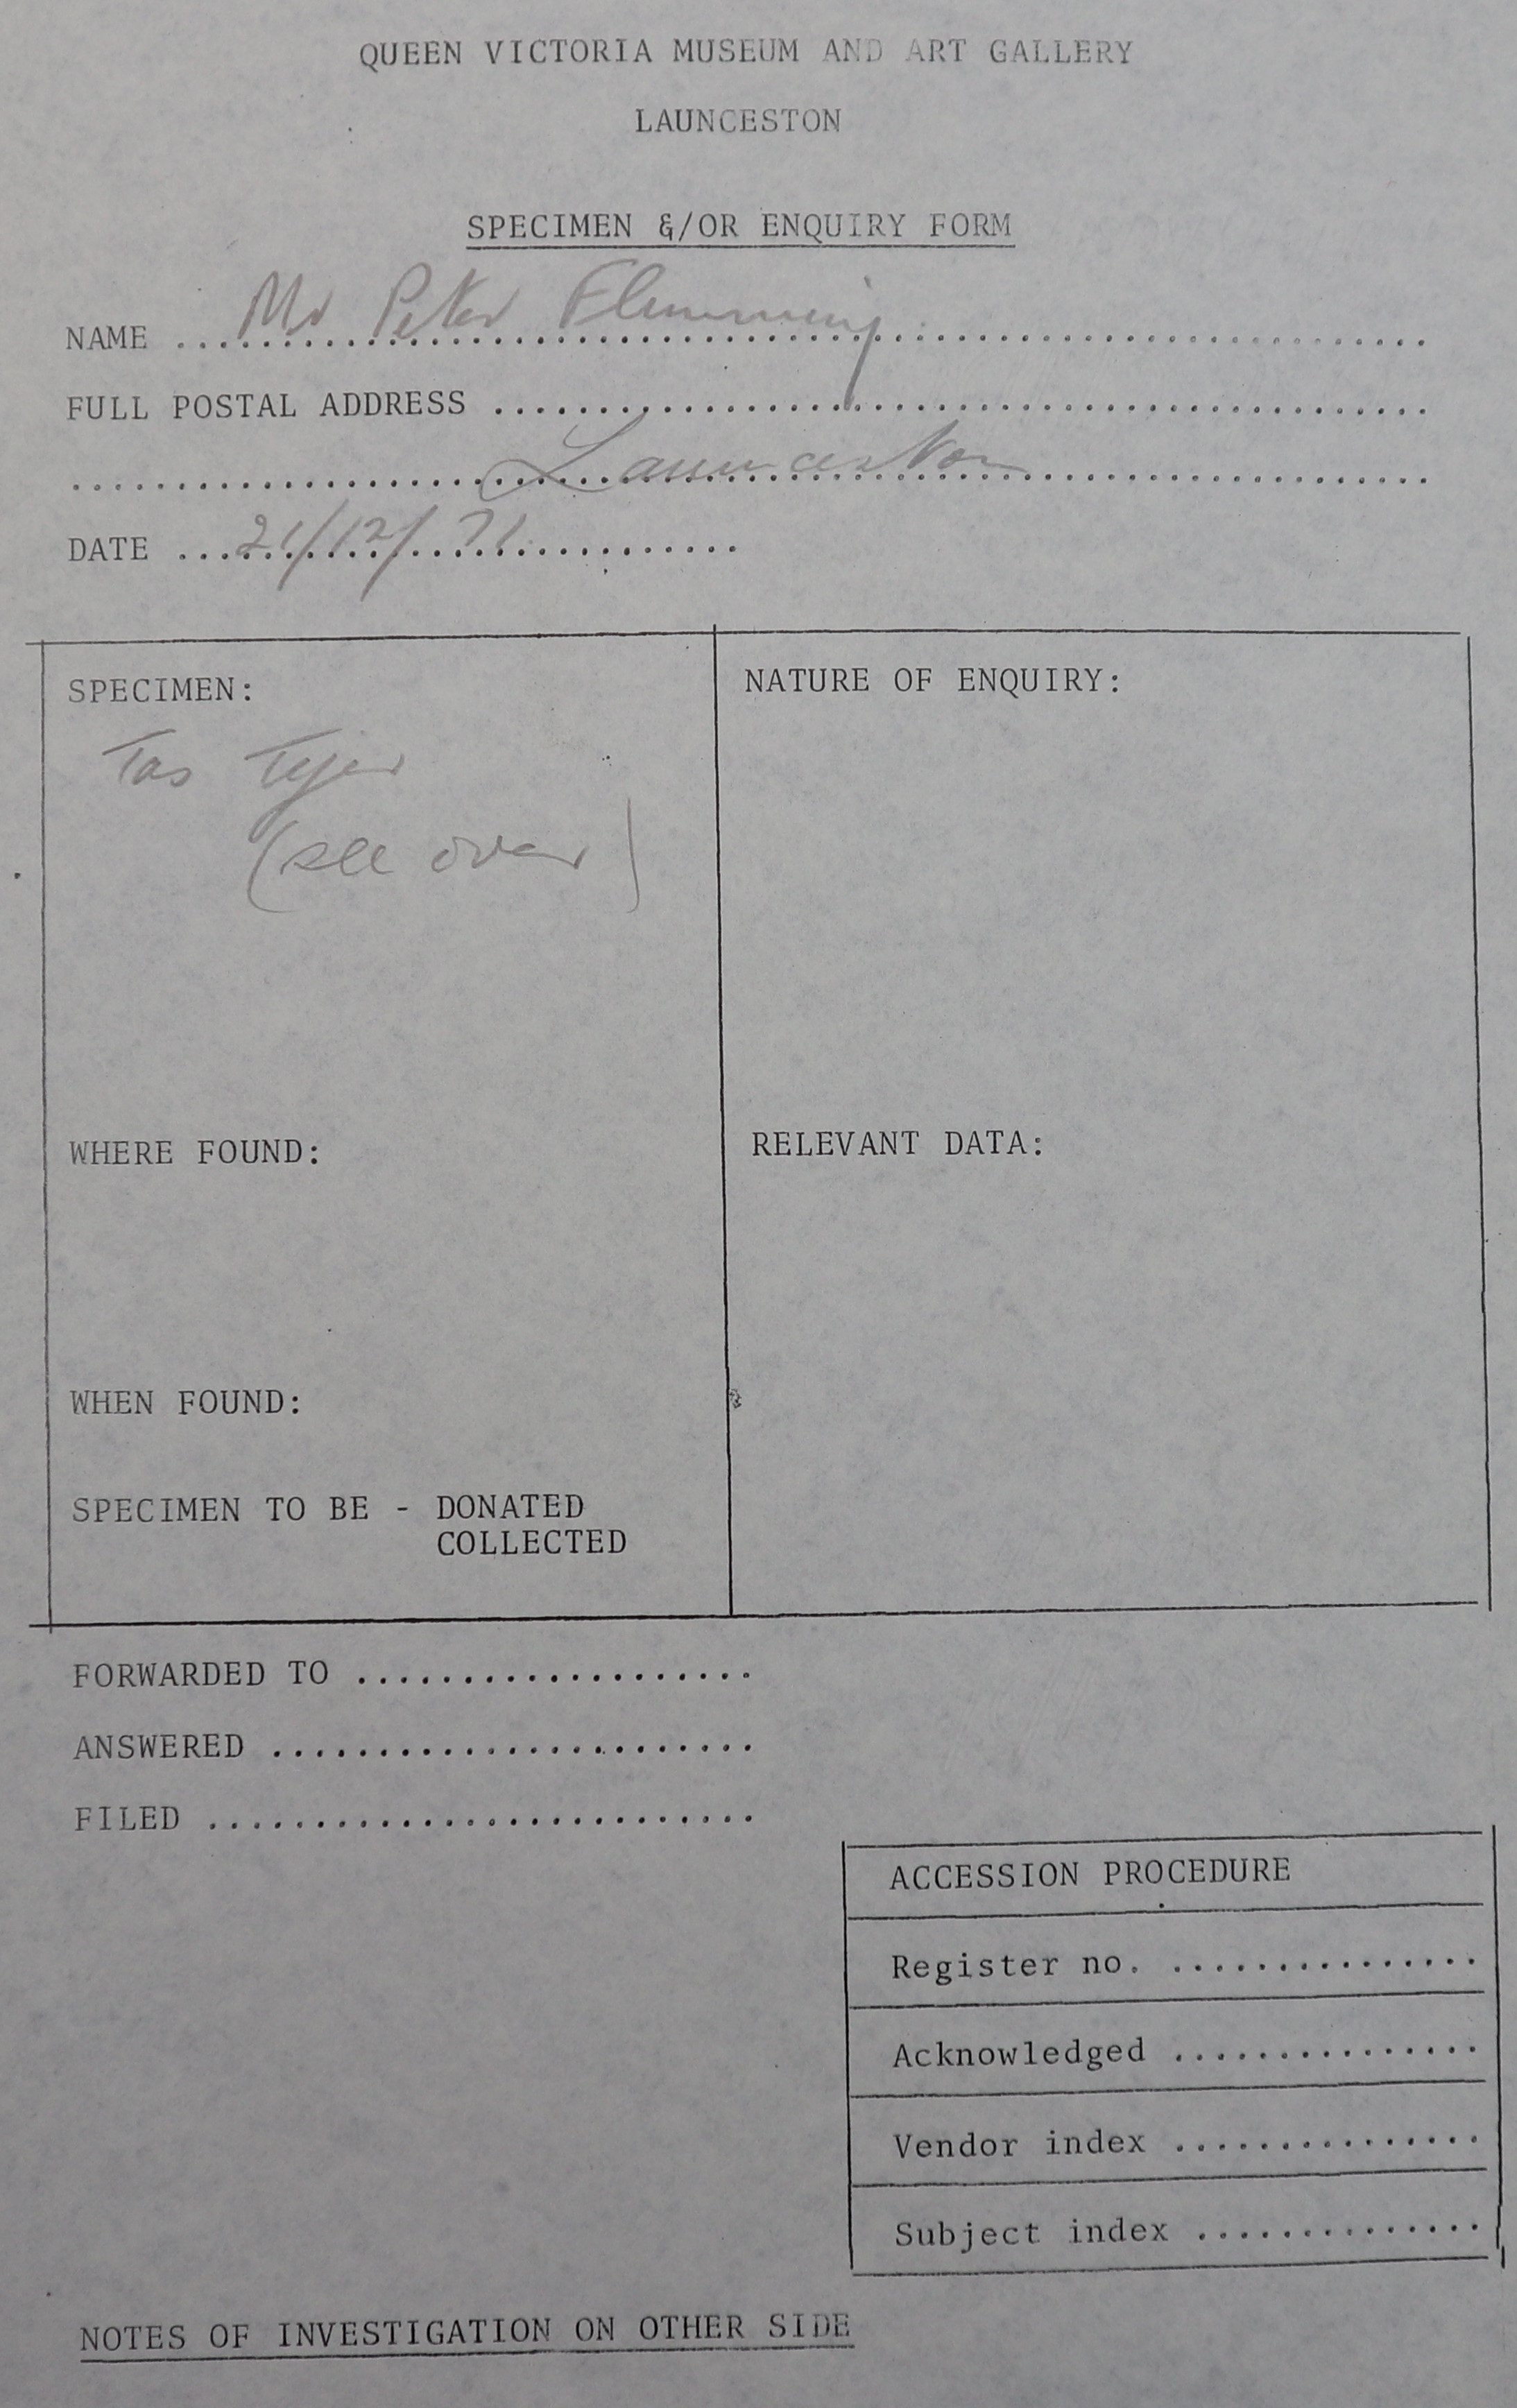 QUEEN VICTORIA MUSEUM AND ART GALLERY
LAUNCESTON
SPECIMEN &/OR ENQUIRY FORM
NAME Mr Peter Flemming
FULL POSTAL ADDRESS
Launceston
DATE 21/12/71
SPECIMEN:
Tas Tiger
(see over)
WHERE FOUND:
WHEN FOUND:
SPECIMEN TO BE - DONATED
COLLECTED
NATURE OF ENQUIRY:
RELEVANT DATA:
FORWARDED TO
ANSWERED
FILED
ACCESSION PROCEDURE
Register no.
Acknowledged
Vendor index
Subject index
NOTES OF INVESTIGATION ON OTHER SIDE